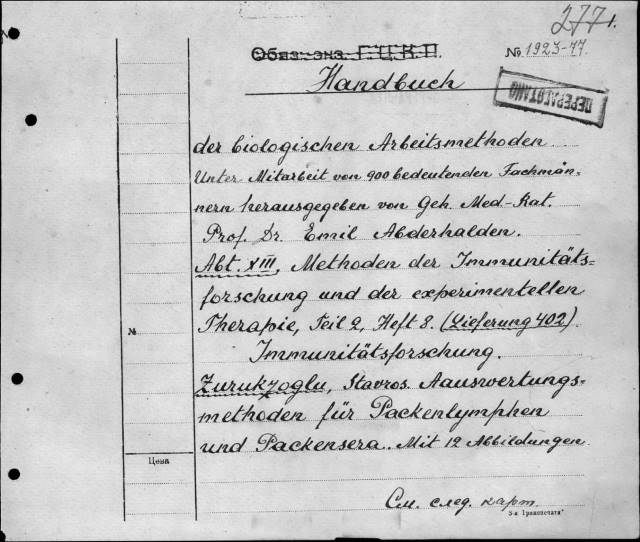 277 1.
Обяз. экз. Г.Ц.К.П.
№ 1923-77.
Handbuch
ПЕРЕРАБОТАНО
der biologischen Arbeitsmethoden
Unter Mitarbeit von 900 bedeutenden Fachmän-
nern herausgegeben von Geh. Med.-Rat.
Prof. Dr. Emil Abderhalden.
Abt. XIII, Methoden der Immunitäts=
forschung und der experimentellen
№
Therapie, Teil 2, Heft 8. (Lieferung 402).
Immunitätsforschung.
Zurukzoglu, Stavros. Aauswertungs=
methoden für Packenlymphen
und Packensera. Mit 12 Abbildungen.
Цена
См. след. карт.